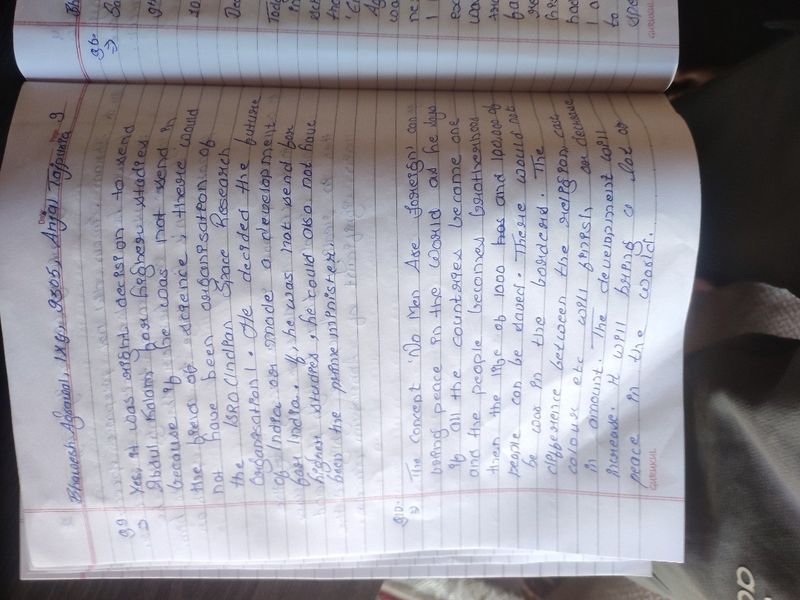 Bhavesh Agrawal, IXG, 9305, Anjal Tajpuria 9
99
⇒ Yes, it was right decision to send
Abdul Kalam for higher studies
because if he was not send in
the field of science, there would
not have been organisation of
ISRO (Indian Space Research
Organisation). He decided the future
of India or made a development
for India. If, he was not send for
higher studies, he could also not have
been the prime minister.
910.
⇒ The concept 'No Men Are foreign' can
bring peace in the world as he says
if all the countries become one
and the people becomes
then the life of 1000 has and 100000 of
people can be saved. There would not
be war in the borders. The
difference between the religion, cast
colour etc will finish or decrease
in amount. The development will
increase. It will bring a lot of
peace in the world.
GURUKUL
96.
⇒
GURUKUL